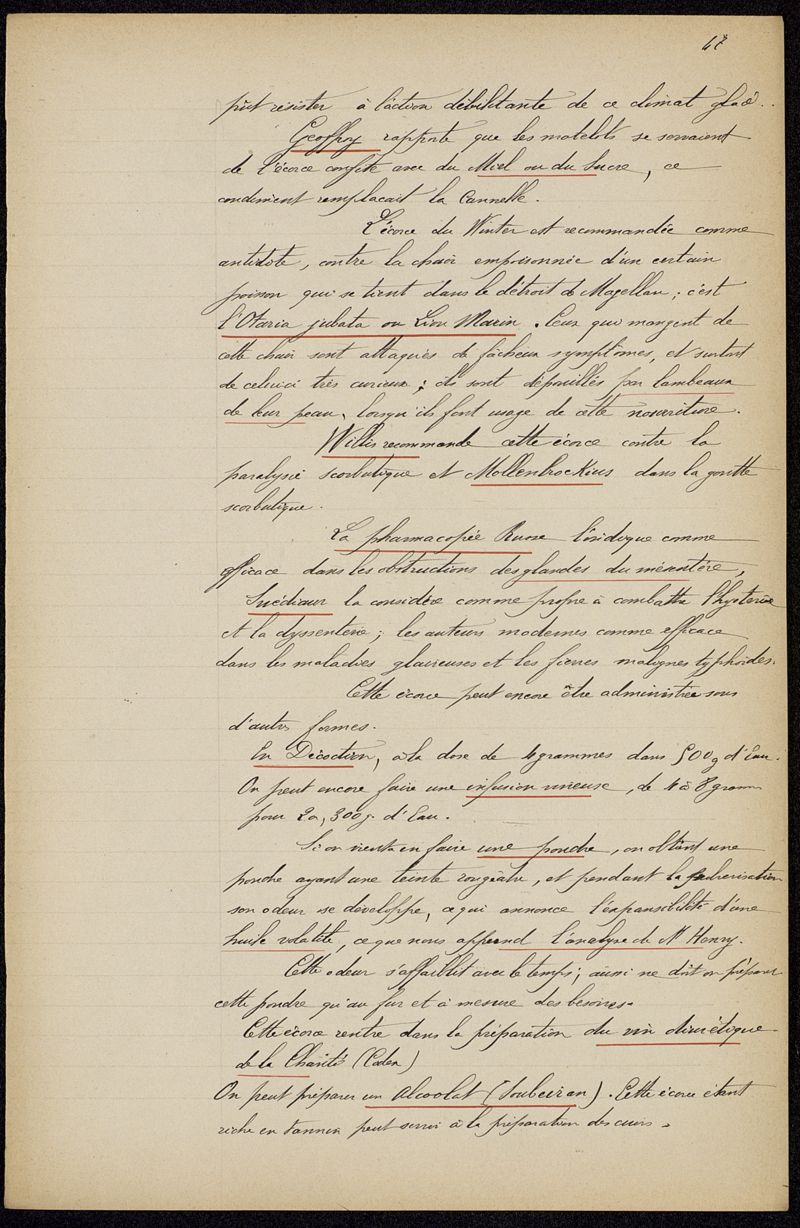 47
pût résister à l'action débilitante de ce climat glacé.
Geoffroy rapporte que les matelots se servaient
de l'écorce confite avec du Miel ou du Sucre, ce
condiment remplacait la Cannelle.
L'écorce du Winter est recommandée comme
antidote, contre la chair empoisonnée d'un certain
poisson qui se tient dans le détroit de Magellan ; c'est
l'Otaria jubata ou Lion Marin. Ceux qui mangent de
cette chair sont attaqués de fâcheux symptômes, et surtout
de celui ci très curieux ; ils sont dépouillés par lambeaux
de leur peau, lorsqu'ils font usage de cette nourriture.
Willis recommande cette écorce contre la
paralysie scorbutique et Mollenbrockius dans la goutte
scorbutique.
La pharmacopée Russe l'indique comme
efficace dans les obstructions des glandes du mésentère,
Swédiaur la considère comme propre à combattre l'hysterie
et la dyssenterie ; les auteurs modernes comme efficace
dans les maladies glaireuses et les fièvres malignes typhoïdes.
Cette écorce peut encore être administrée sous
d'autres formes.
En Décoction, à la dose de 4 grammes dans 500g d'Eau.
On peut encore faire une infusion vineuse, de 4 à 8 gramm
pour 2 à, 300g. d'Eau.
Si on vient à en faire une poudre, on obtient une
poudre ayant une teinte rougeâtre, et pendant la pulvérisation
son odeur se développe, ce qui annonce l'expansibilité d'une
huile volatile, ce que nous apprend l'analyse de Mr Henry.
Cette odeur s'affaiblit avec le temps ; aussi ne doit on préparer
cette poudre qu'au fur et à mesure des besoins.
Cette écorce rentre dans la préparation du vin diurétique
de la Charité (Codex)
On peut préparer un Alcoolat (Soubeiran). Cette écorce étant
riche en tannin peut servir à la préparation des cuirs.